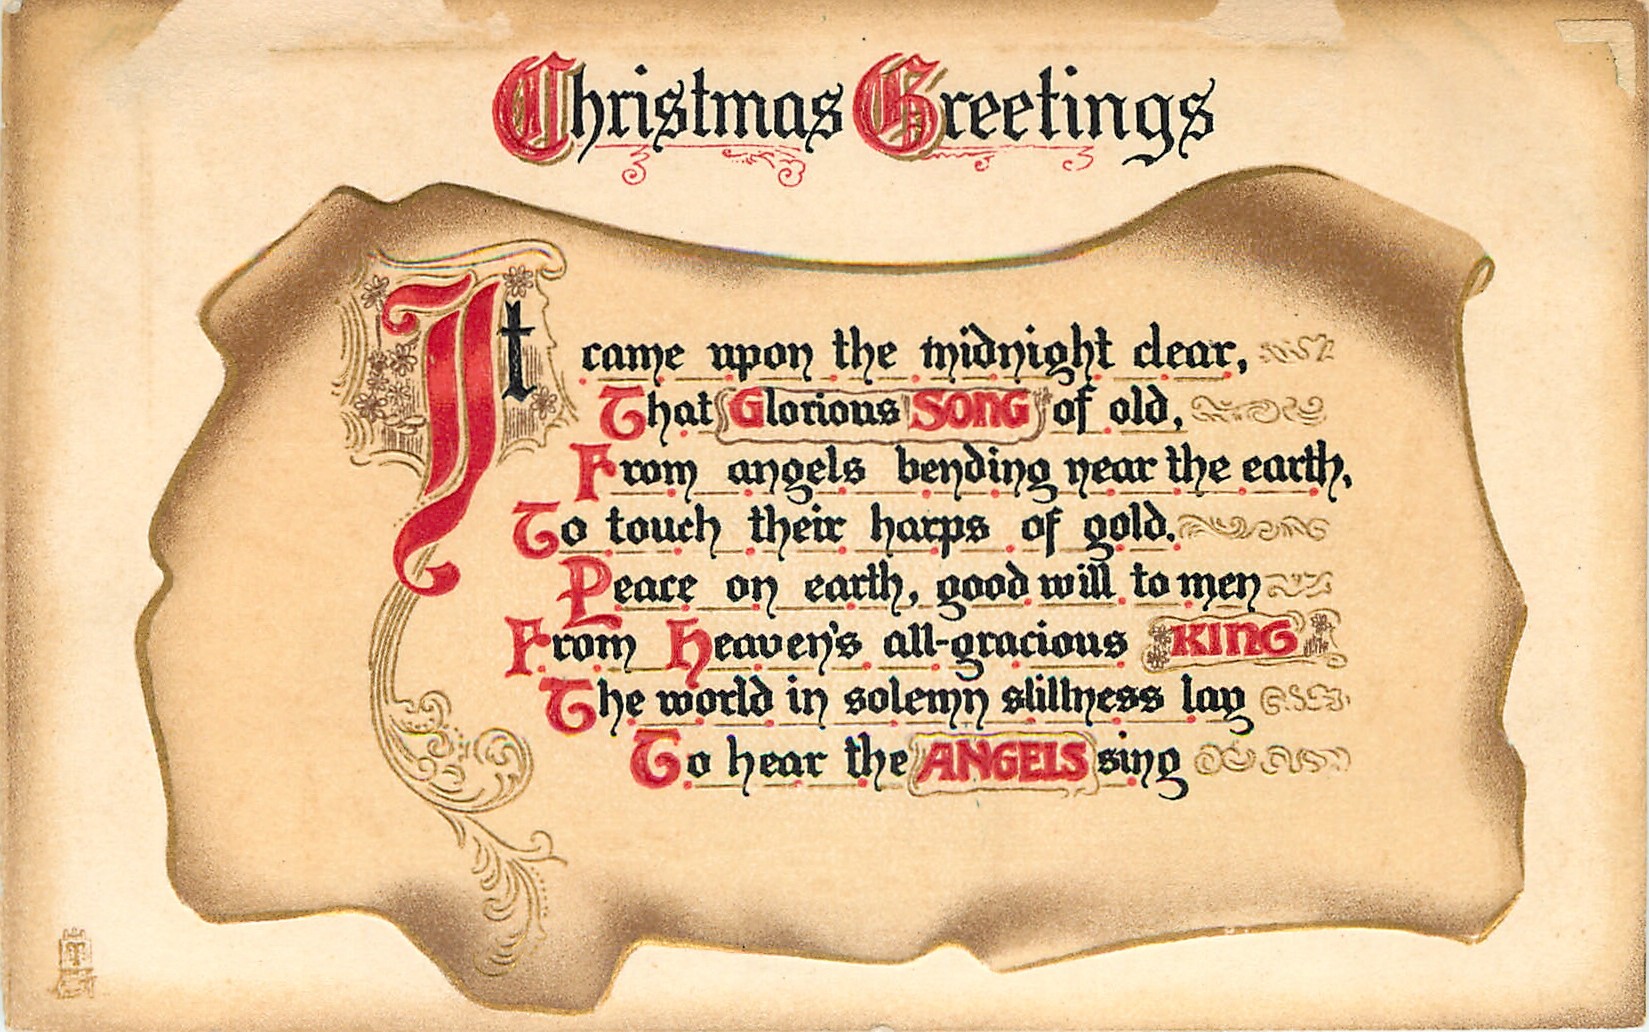 Christmas Greetings
It came upon the midnight clear,
That Glorious SONG of old,
From angels bending near the earth,
To touch their harps of gold.
Peace on earth, good will to men
From Heaven's all-gracious KING
The world in solemn stillness lay
To hear the ANGELS sing